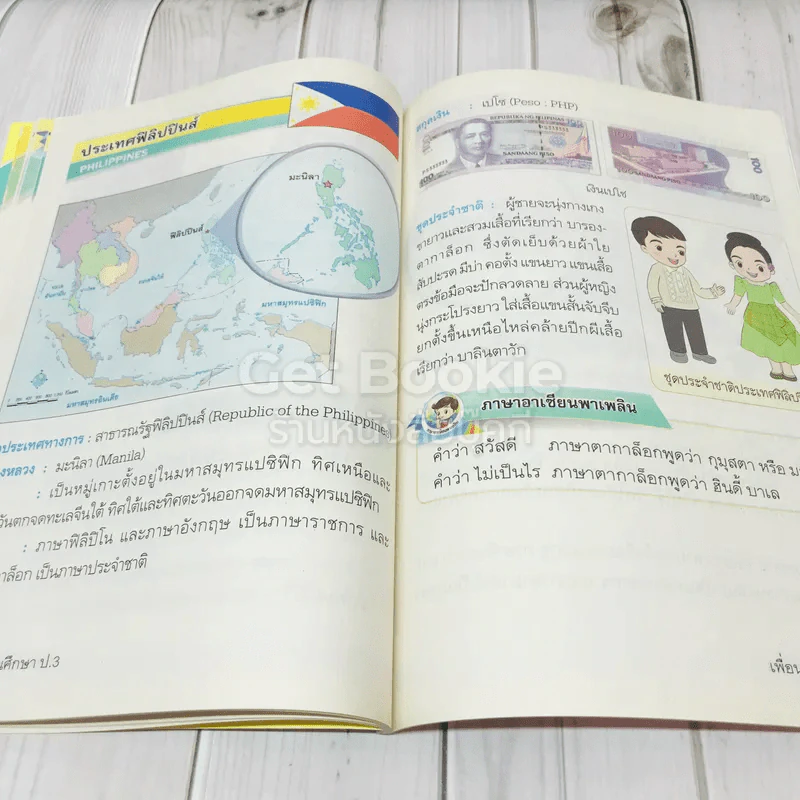 ประเทศฟิลิปปินส์
PHILIPPINES
มะนิลา
ฟิลิปปินส์
มหาสมุทรแปซิฟิก
มหาสมุทรอินเดีย
ประเทศทางการ : สาธารณรัฐฟิลิปปินส์ (Republic of the Philippines)
งหลวง : มะนิลา (Manila)
: เป็นหมู่เกาะตั้งอยู่ในมหาสมุทรแปซิฟิก ทิศเหนือและ
วันตกจดทะเลจีนใต้ ทิศใต้และทิศตะวันออกจดมหาสมุทรแปซิฟิก
: ภาษาฟิลิปิโน และภาษาอังกฤษ เป็นภาษาราชการ และ
าล็อก เป็นภาษาประจำชาติ
นศึกษา ป.3
สกุลเงิน : เปโซ (Peso : PHP)
REPUBLIKA NG PILIPINAS
100
SANDAANG PISO
100
เงินเปโซ
ชุดประจำชาติ : ผู้ชายจะนุ่งกางเกง
ขายาวและสวมเสื้อที่เรียกว่า บารอง-
ตากาล็อก ซึ่งตัดเย็บด้วยผ้าใย
สับปะรด มีบ่า คอตั้ง แขนยาว แขนเสื้อ
ตรงข้อมือจะปักลวดลาย ส่วนผู้หญิง
นุ่งกระโปรงยาว ใส่เสื้อแขนสั้นจับจีบ
ยกตั้งขึ้นเหนือไหล่คล้ายปีกผีเสื้อ
เรียกว่า บาลินตาวัก
ชุดประจำชาติประเทศฟิลิปปิ
ภาษาอาเซียนพาเพลิน
คำว่า สวัสดี ภาษาตากาล็อกพูดว่า กูมุสตา หรือ
คำว่า ไม่เป็นไร ภาษาตากาล็อกพูดว่า ฮินดี้ บาเล
เพื่อน
Get Bookie
ร้านหนังสือบุ๊คกี้